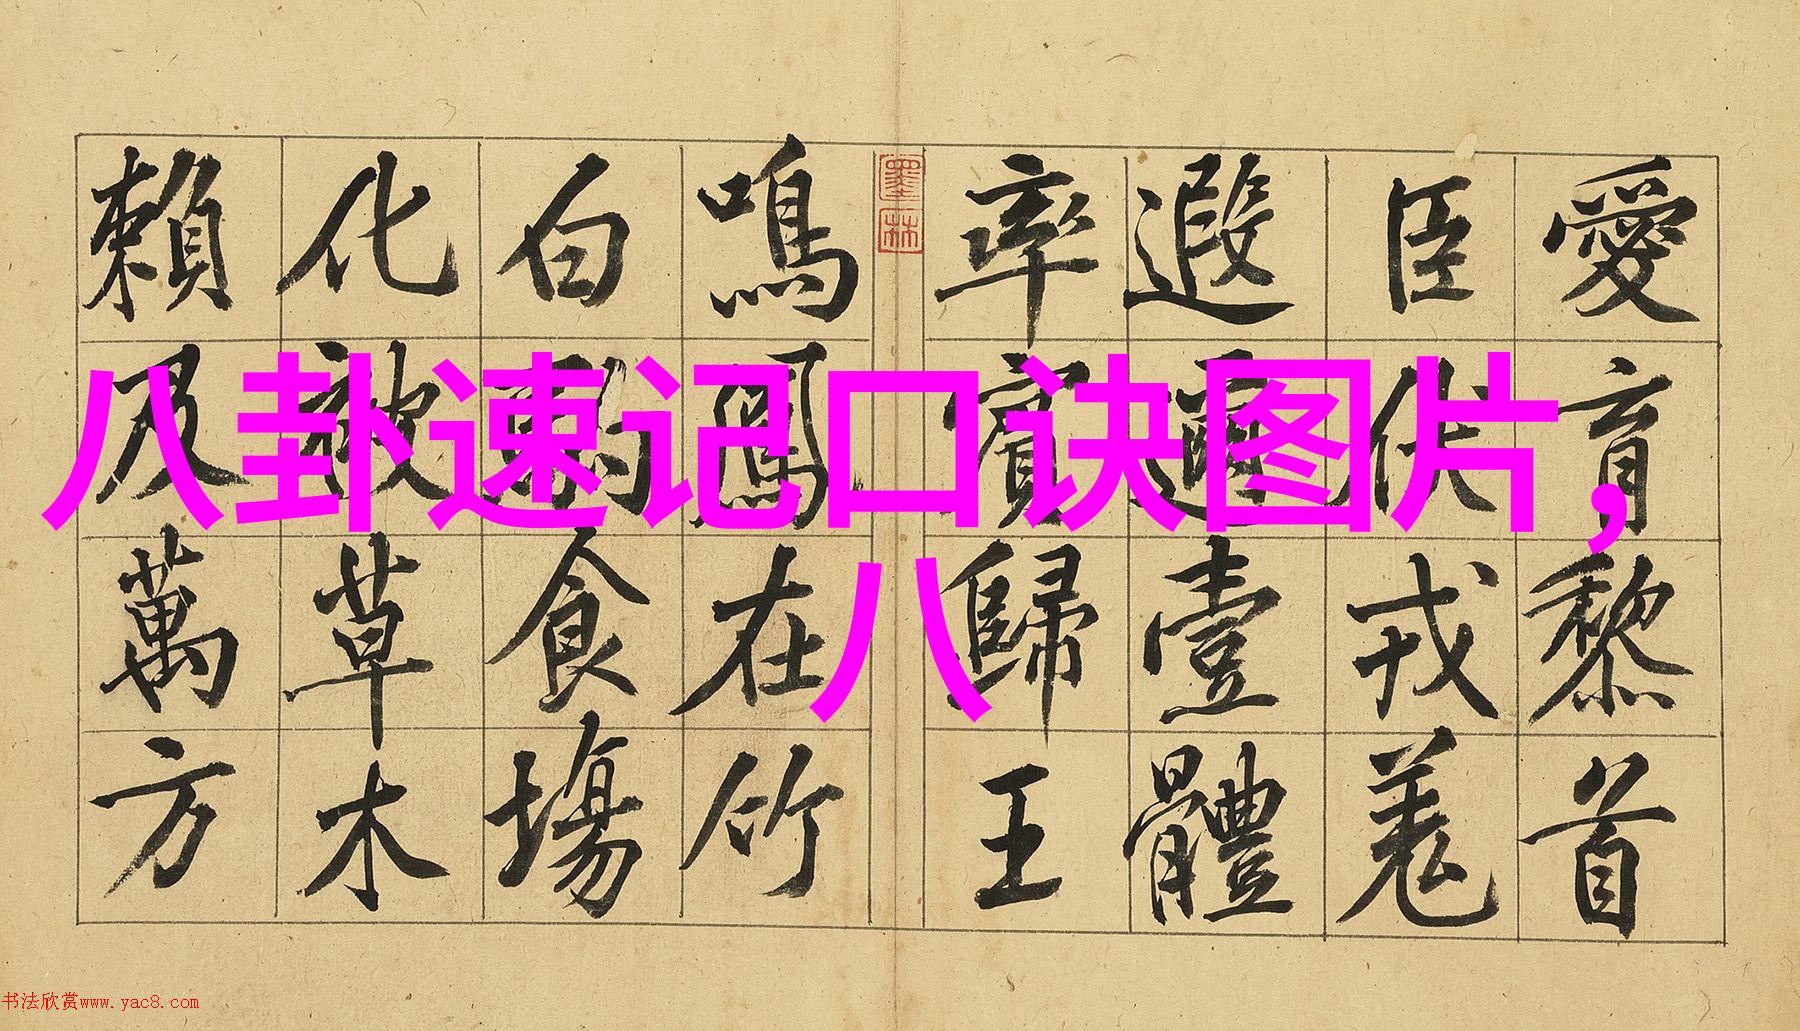 八卦速记口诀图片，
八
愛育黎首
臣伏戎羌
遐邇壹體
率賓歸王
鳴鳳在竹
白駒食場
化被草木
賴及萬方
墨林
书法欣赏www.yac8.com